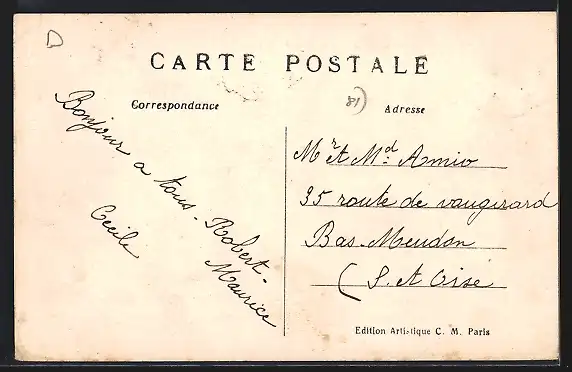 D
CARTE POSTALE
Correspondance
81)
Adresse
Bonjour à tous - Robert -
Maurice
Cécile
Mr et Md. Amio
35 route de vaugirard
Bas-Meudon
(S. et Oise
Edition Artistique C. M. Paris